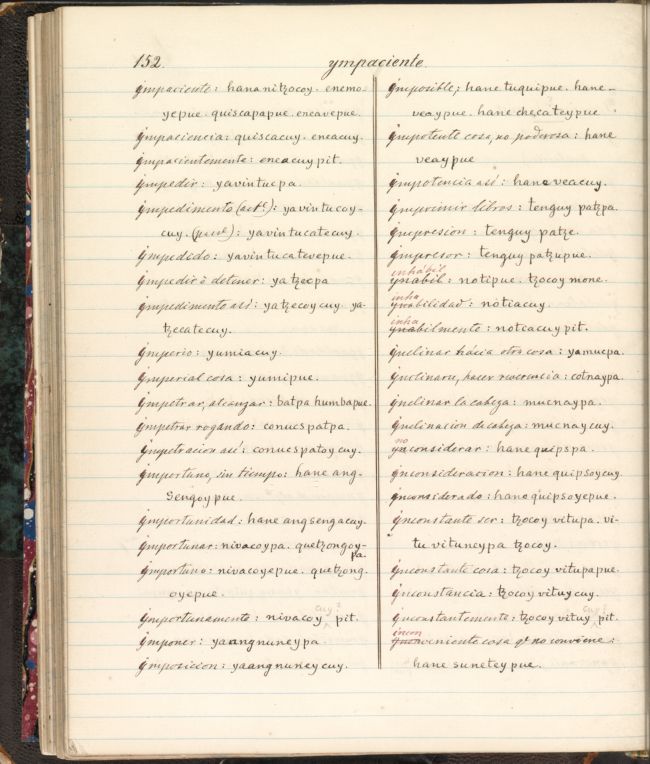 152. ympaciente.
ympaciente: hananitzocoy. enemo-
yepue. quiscapapue. eneavepue.
ympaciencia: quiscacuy. eneacuy.
ympacientemente: eneacuypit.
ympedir: yavintucpa.
ympedimento (act.): yavintucoy-
cuy. (pasv.): yavintucatecuy.
ympedido: yavintucatevepue.
ympedir ò detener: yatzecpa
ympedimento asi: yatzecoycuy ya-
tzecatecuy.
ymperio: yumiacuy.
ymperial cosa: yumipue.
ympetrar, alcanzar: batpa humbapue.
ympetrar rogando: conucspatpa.
ympetracion asi: conucspatoycuy.
ymportuno, sin tiempo: hane ang-
sengoypue.
ymportunidad: hane angsengacuy.
ymportunar: nivacoypa. quetzongoy-
pa.
ymportuno: nivacoyepue. quetzong-
oyepue.
cuy?
ymportunamente: nivacoy pit.
ymponer: yaangnuneypa.
ymposicion: yaangnuneycuy.
ymposible; hane tuquipue. hane-
veaypue. hane checateypue
ympotente cosa, no poderosa: hane
veaypue
ympotencia asi: hane veacuy.
ymprimir libros: tenguy patzpa.
ympresion: tenguy patze.
ympresor: tenguy patzupue.
inhábil
ynabil: notipue. tzocoy mone.
inha
ynabilidad: notiacuy.
inha
ynabilmente: notiacuypit.
ynclinar hácia otra cosa: yamucpa.
ynclinarse, hacer reverencia: cotnaypa.
ynclinar la cabeza: mucnaypa.
ynclinacion de cabeza: mucnaycuy.
no
ynconsiderar: hane quipspa.
ynconsideracion: hane quipsoycuy.
ynconsiderado: hane quipsoyepue.
ynconstante ser: tzocoy vitupa. vi-
tu vituneypa tzocoy.
ynconstante cosa: tzocoy vitupapue.
ynconstancia: tzocoy vituycuy.
cuy?
ynconstantemente: tzocoy vituy pit.
incon
ynconveniente cosa qe no conviene:
hane suneteypue.